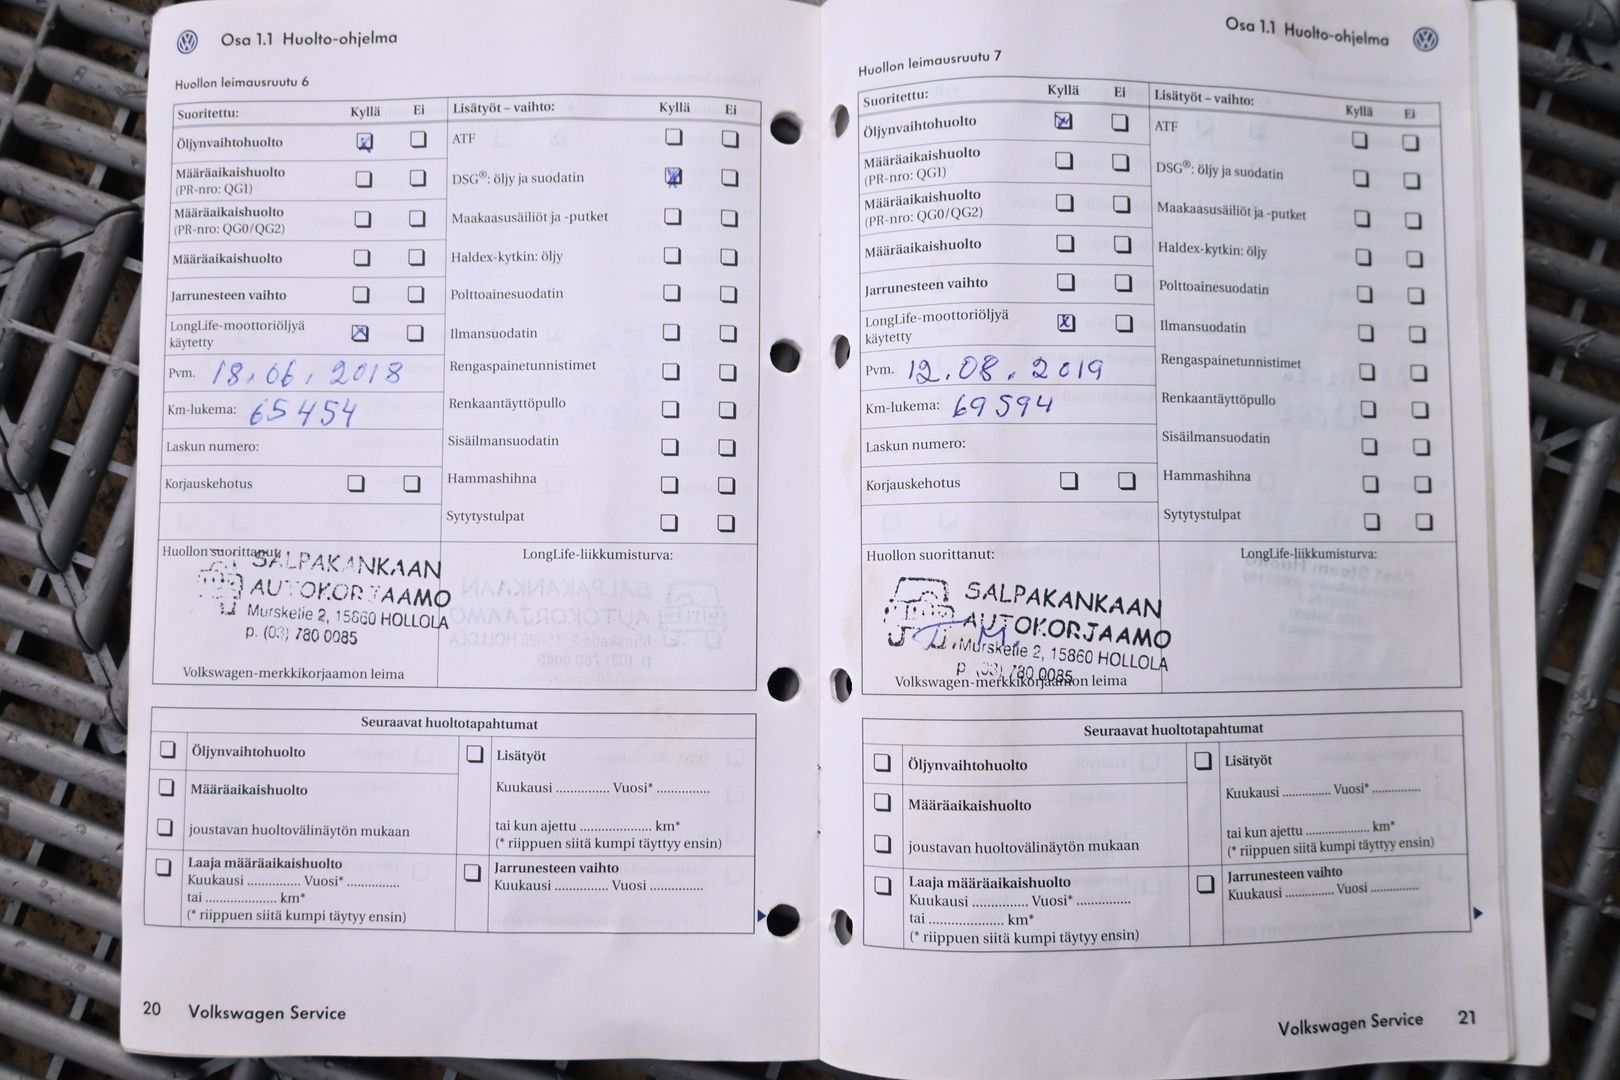 Osa 1.1 Huolto-ohjelma
Huollon leimausruutu 6
Suoritettu: Kyllä Ei
Öljynvaihtohuolto
Määräaikaishuolto
(PR-nro: QG1)
Määräaikaishuolto
(PR-nro: QG0/QG2)
Määräaikaishuolto
Jarrunesteen vaihto
LongLife-moottoriöljyä
käytetty
Pvm. 18.06.2018
Km-lukema: 65454
Laskun numero:
Korjauskehotus
Lisätyöt – vaihto: Kyllä Ei
ATF
DSG®: öljy ja suodatin
Maakaasusäiliöt ja -putket
Haldex-kytkin: öljy
Polttoainesuodatin
Ilmansuodatin
Rengaspainetunnistimet
Renkaantäyttöpullo
Sisäilmansuodatin
Hammashihna
Sytytystulpat
Huollon suorittanut:
SALPAKANKAAN
AUTOKORJAAMO
Mursketie 2, 15860 HOLLOLA
p. (03) 780 0085
Volkswagen-merkkikorjaamon leima
LongLife-liikkumisturva:
Seuraavat huoltotapahtumat
Öljynvaihtohuolto
Määräaikaishuolto
joustavan huoltovälinäytön mukaan
Laaja määräaikaishuolto
Kuukausi .............. Vuosi* ..............
tai ................... km*
(* riippuen siitä kumpi täytyy ensin)
Lisätyöt
Kuukausi .............. Vuosi* ..............
tai kun ajettu ................... km*
(* riippuen siitä kumpi täyttyy ensin)
Jarrunesteen vaihto
Kuukausi .............. Vuosi ..............
20 Volkswagen Service
Osa 1.1 Huolto-ohjelma
Huollon leimausruutu 7
Suoritettu: Kyllä Ei
Öljynvaihtohuolto
Määräaikaishuolto
(PR-nro: QG1)
Määräaikaishuolto
(PR-nro: QG0/QG2)
Määräaikaishuolto
Jarrunesteen vaihto
LongLife-moottoriöljyä
käytetty
Pvm. 12.08.2019
Km-lukema: 69594
Laskun numero:
Korjauskehotus
Lisätyöt – vaihto: Kyllä Ei
ATF
DSG®: öljy ja suodatin
Maakaasusäiliöt ja -putket
Haldex-kytkin: öljy
Polttoainesuodatin
Ilmansuodatin
Rengaspainetunnistimet
Renkaantäyttöpullo
Sisäilmansuodatin
Hammashihna
Sytytystulpat
Huollon suorittanut:
SALPAKANKAAN
AUTOKORJAAMO
Mursketie 2, 15860 HOLLOLA
p. (03) 780 0085
Volkswagen-merkkikorjaamon leima
LongLife-liikkumisturva:
Seuraavat huoltotapahtumat
Öljynvaihtohuolto
Määräaikaishuolto
joustavan huoltovälinäytön mukaan
Laaja määräaikaishuolto
Kuukausi .............. Vuosi* ..............
tai ................... km*
(* riippuen siitä kumpi täytyy ensin)
Lisätyöt
Kuukausi .............. Vuosi* ..............
tai kun ajettu ................... km*
(* riippuen siitä kumpi täyttyy ensin)
Jarrunesteen vaihto
Kuukausi .............. Vuosi ..............
Volkswagen Service 21